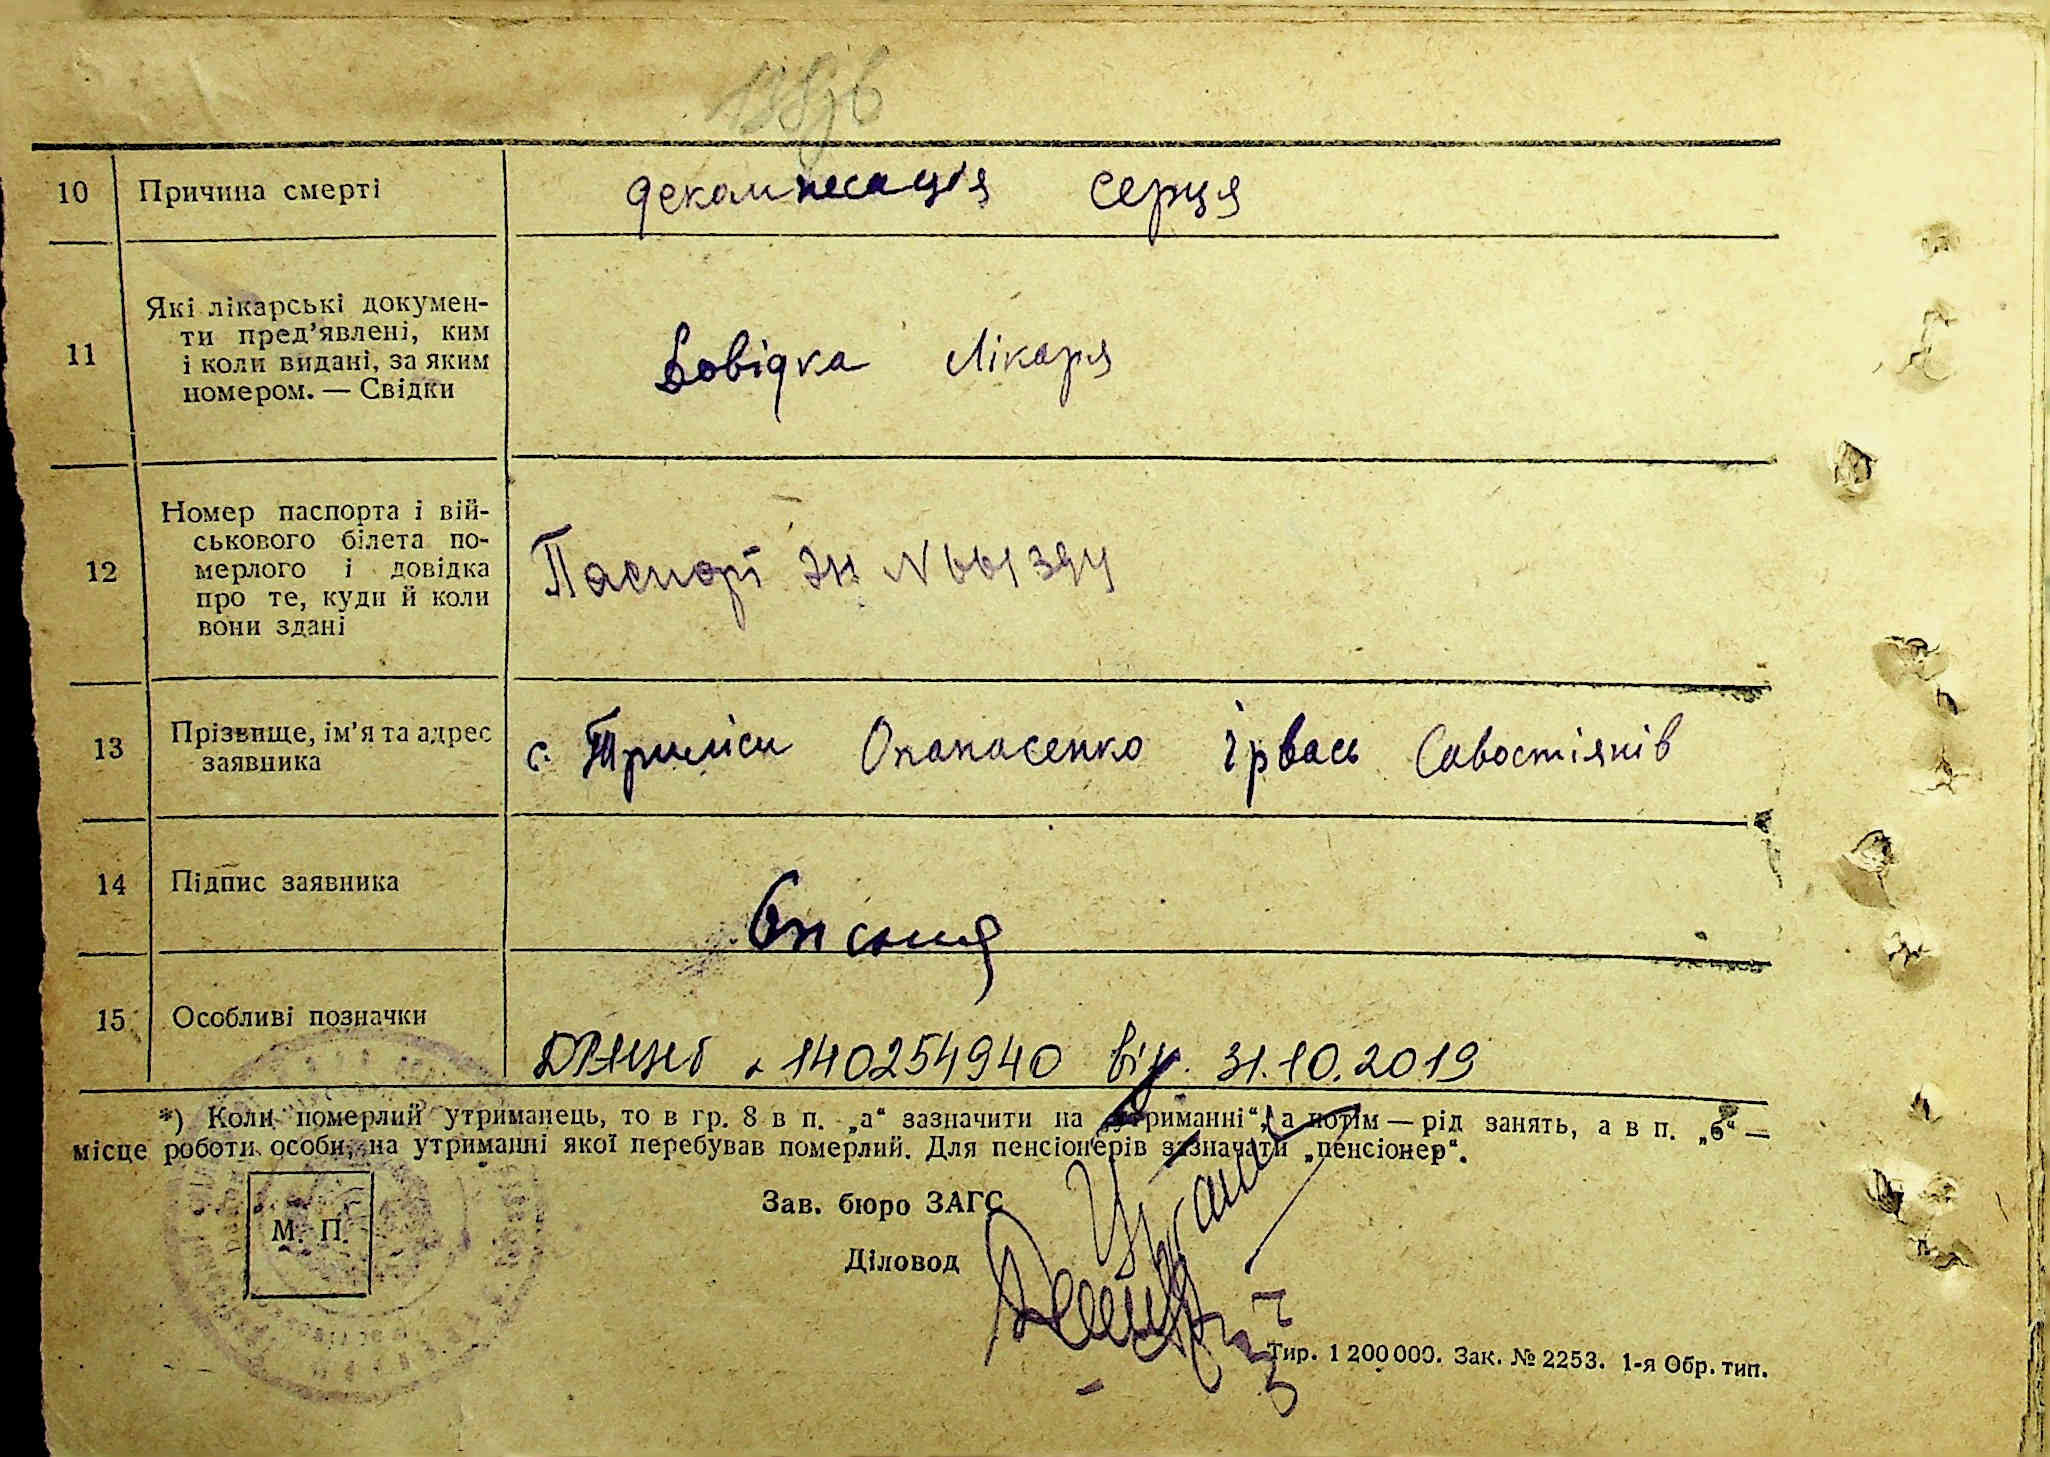 10 Причина смерті декомпесація серця
11 Які лікарські докумен-
ти пред’явлені, ким
і коли видані, за яким
номером. — Свідки
Довідка лікаря
12 Номер паспорта і вій-
ськового білета по-
мерлого і довідка
про те, куди й коли
вони здані
Паспорт № 661394
13 Прізвище, ім’я та адрес
заявника
с. Триліси Опанасенко Ірвась Савостіянів
14 Підпис заявника
15 Особливі позначки
140254940 від. 31.10.2019
*) Коли померлий утриманець, то в гр. 8 в п. „а“ зазначити на „утриманні“, а потім — рід занять, а в п. „б“ —
місце роботи особи, на утриманні якої перебував померлий. Для пенсіонерів зазначати „пенсіонер“.
М. П.
Зав. бюро ЗАГС
Діловод
Тир. 1 200 000. Зак. № 2253. 1-я Обр. тип.